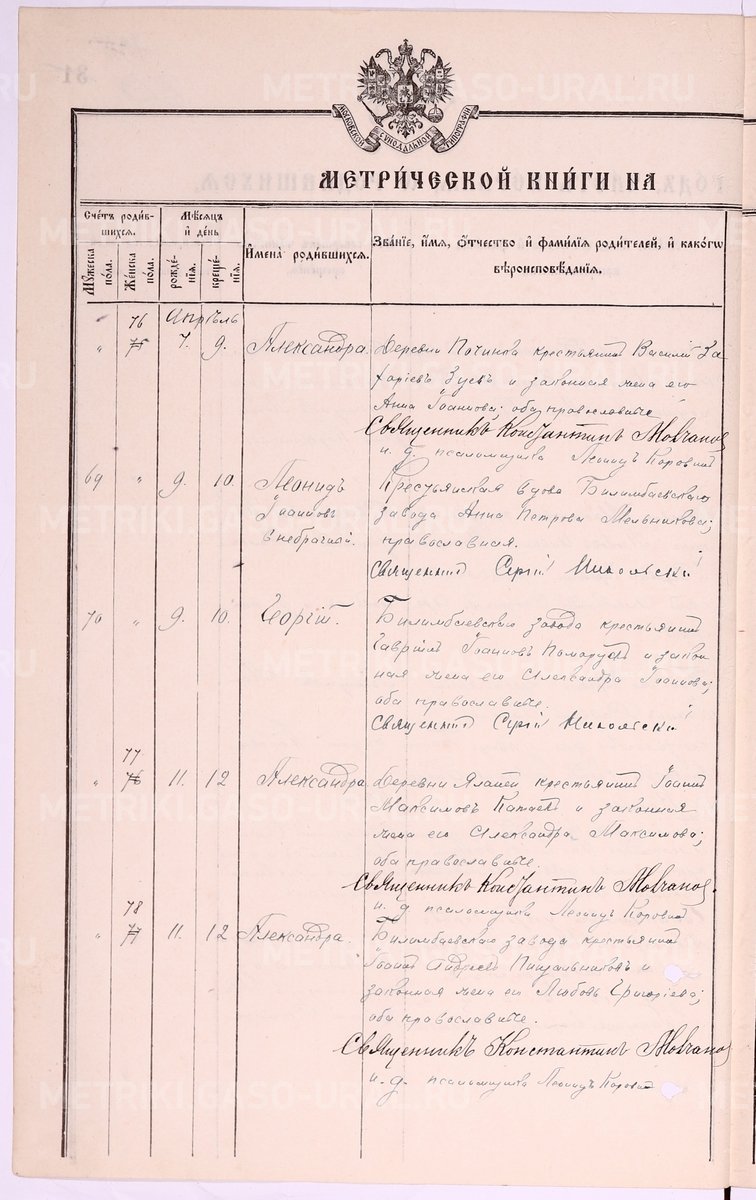 МОСКОВСКОЙ СѴНОДАЛЬНОЙ ТИПОГРАФІИ
МЕТРИ́ЧЕСКОЙ КНИ́ГИ НА
Сче́тъ роди́вшихся.
Мꙋ́жеска пола.
Же́нска пола.
Мѣ́сяцъ и҆ де́нь
рожде́нїя.
креще́нїя.
И҆мена̀ роди́вшихся.
Зва́нїе, и҆́мя, ѻ҆́тчество и҆ фами́лїя роди́телей, и҆ како́гѡ вѣроисповѣ́данїя.
Апрѣль
„ 76 75 7. 9. Александра. Деревни Починка крестьянинъ Василій За
харіевъ Зуевъ и законная жена его
Анна Іоаннова; оба православные
Священникъ Константинъ
и. д. псаломщика Леонидъ Коровинъ
69 „ 9. 10. Леонидъ Крестьянская вдова Билимбаевскаго
Іоанновъ завода Анна Петрова Мельникова;
внебрачный. православная.
Священникъ Сергій
70 „ 9. 10. Георгій. Билимбаевскаго завода крестьянинъ
Гавріилъ Іоанновъ и закон
ная жена его Александра Іоаннова;
оба православные.
Священникъ Сергій
„ 77 76 11. 12 Александра Деревни крестьянинъ Іоаннъ
Максимовъ и законная
жена его Александра Максимова;
оба православные.
Священникъ Константинъ
и. д. псаломщика Леонидъ Коровинъ
„ 78 77 11. 12 Александра. Билимбаевскаго завода крестьянинъ
Іоаннъ Андреевъ Пищальниковъ и
законная жена его Любовь Григоріева;
оба православные.
Священникъ Константинъ
и. д. псаломщика Леонидъ Коровинъ
METRIKI.GASO-URAL.RU